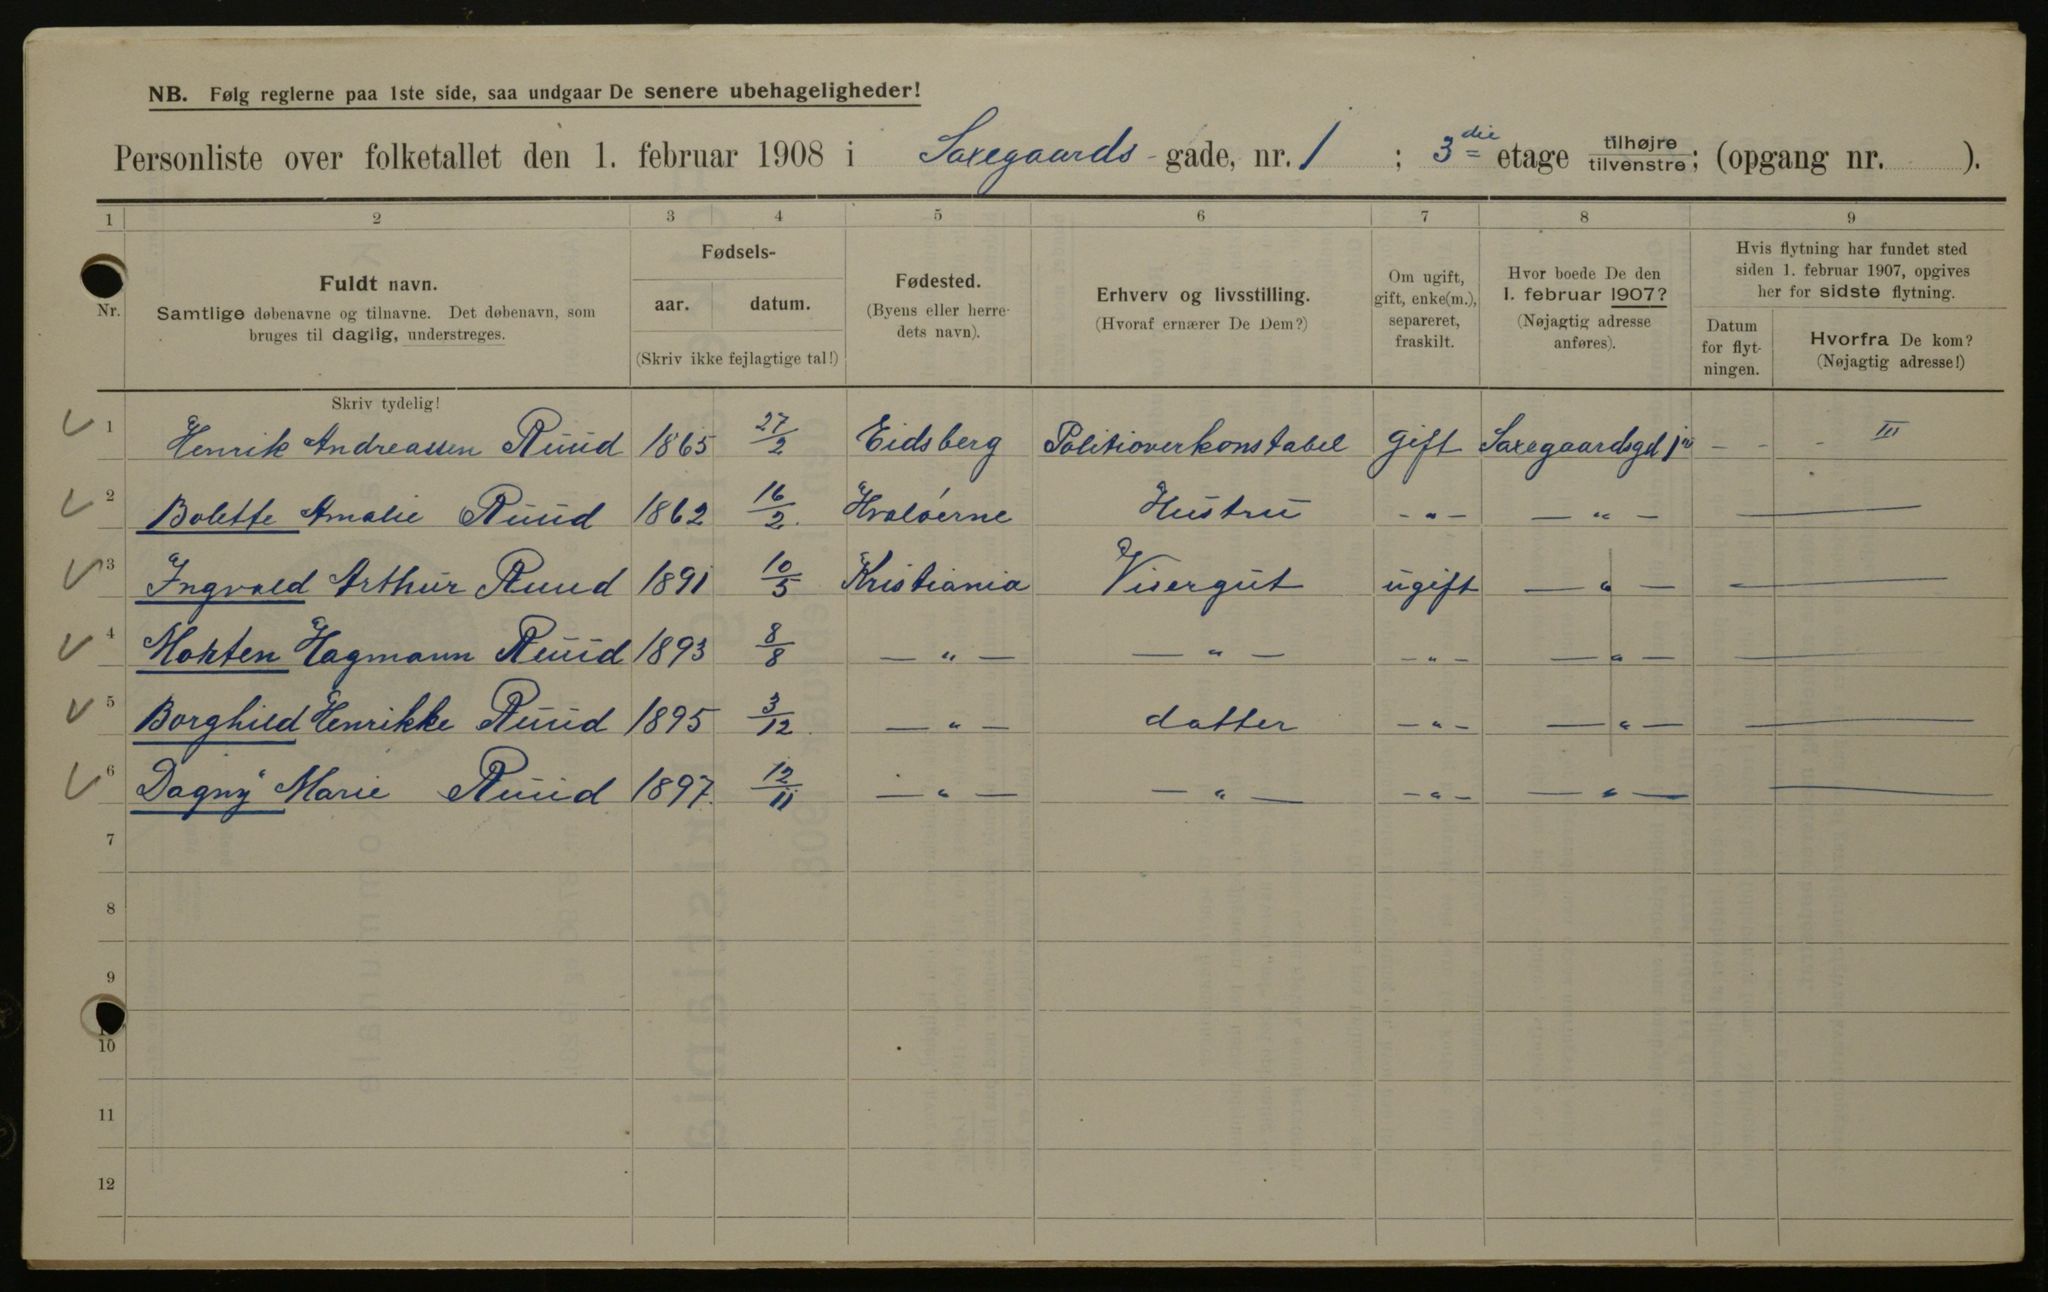 NB. Følg reglerne paa 1ste side, saa undgaar De senere ubehageligheder!
Personliste over folketallet den 1. februar 1908 i Saxegaards-gade, nr. 1 ; 3die etage tilhøjre/tilvenstre; (opgang nr. ).
1 2 3 4 5 6 7 8 9
Nr.
Fuldt navn.
Samtlige døbenavne og tilnavne. Det døbenavn, som
bruges til daglig, understreges.
Skriv tydelig!
Fødsels-
aar. datum.
(Skriv ikke fejlagtige tal!)
Fødested.
(Byens eller herre-
dets navn).
Erhverv og livsstilling.
(Hvoraf ernærer De Dem?)
Om ugift,
gift, enke(m.),
separeret,
fraskilt.
Hvor boede De den
1. februar 1907?
(Nøjagtig adresse
anføres).
Hvis flytning har fundet sted
siden 1. februar 1907, opgives
her for sidste flytning.
Datum
for flyt-
ningen.
Hvorfra De kom?
(Nøjagtig adresse!)
1 Henrik Andreassen Ruud 1865 27/2 Eidsberg Politioverkonstabel gift Saxegaardsgd 1 - - - III
2 Bolette Amalie Ruud 1862 16/2 Hvaløerne Hustru - " - — " — —
3 Ingvald Arthur Ruud 1891 10/5 Kristiania Visergut ugift — " — —
4 Morten Hagmann Ruud 1893 8/8 — " — — " — - " - — " — —
5 Borghild Henrikke Ruud 1895 3/12 — " — datter - " - — " — —
6 Dagny Marie Ruud 1897 12/11 — " — — " — - " - — " — —
7
8
9
10
11
12